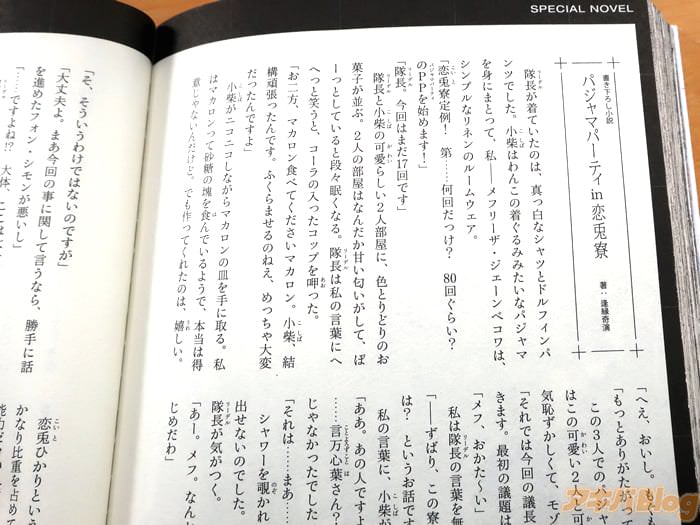 SPECIAL NOVEL
書き下ろし小説
パジャマパーティ in 恋兎寮
著:逢縁奇演
隊長が着ていたのは、真っ白なシャツとドルフィンパ
ンツでした。小柴はわんこの着ぐるみみたいなパジャマ
を身にまとって、私――メフリーザ・ジェーンベコワは、
シンプルなリネンのルームウェア。
「恋兎寮定例! 第……何回だっけ? 80回ぐらい?
のPPを始めます!」
「隊長。今回はまだ17回です」
隊長と小柴の可愛らしい2人部屋に、色とりどりのお
菓子が並ぶ。2人の部屋はなんだか甘い匂いがして、ぼ
ーっとしていると段々眠くなる。隊長は私の言葉にへ
へっと笑うと、コーラの入ったコップを呷った。
「お二方、マカロン食べてくださいマカロン。小柴、結
構頑張ったんです。ふくらませるのねえ、めっちゃ大変
だったんですよ」
小柴がニコニコしながらマカロンの皿を手に取る。私
はマカロンって砂糖の塊を食んでいるようで、本当は得
意じゃないんだけど。でも作ってくれたのは、嬉しい。
「へえ、おいし。も
「もっとありがたがっ
この3人でのパジ
はこの可愛い2人と
気恥ずかしくて、モゾ
「それでは今回の議長
きます。最初の議題は
「メフ、おかた〜い」
私は隊長の言葉を無
「――ずばり、この寮
は? というお話です
私の言葉に、小柴が
「ああ。あの人ですよ
……言万心葉さん?
じゃなかったでした
「それは……まあ……
シャワーを覗かれ
出せないのでした。
隊長が気がつく。
「あー。メフ。なんだ
じめだわ」
恋兎ひかりという
かなり比重を占めて
「そ、そういうわけではないのですが」
「大丈夫よ。まあ今回の事に関して言うなら、勝手に話
を進めたフォン・シモンが悪いし」
「……ですよね!?
アキバBlog